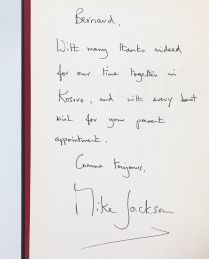 Bernard,
With many thanks indeed
for our time together in
Kosovo, and with every best
wish for your present
appointment.
Comme toujours,
Mike Jackson